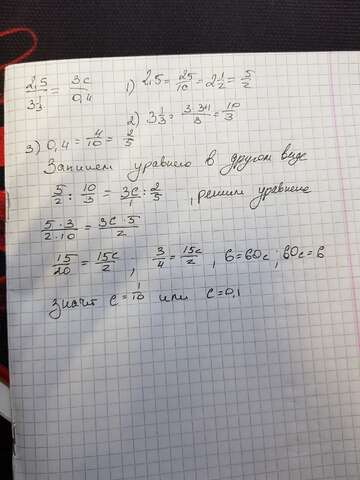 2,5/3 1/3 = 3c/0,4 1) 2,5 = 25/10 = 2 1/2 = 5/2
2) 3 1/3 = 3·3+1/3 = 10/3
3) 0,4 = 4/10 = 2/5
Запишем уравнение в другом виде
5/2 : 10/3 = 3c/1 : 2/5 , решим уравнение
5·3/2·10 = 3c·5/2
15/20 = 15c/2 ; 3/4 = 15c/2 , 6=60c ; 60c=6
значит c = 1/10 или c=0,1